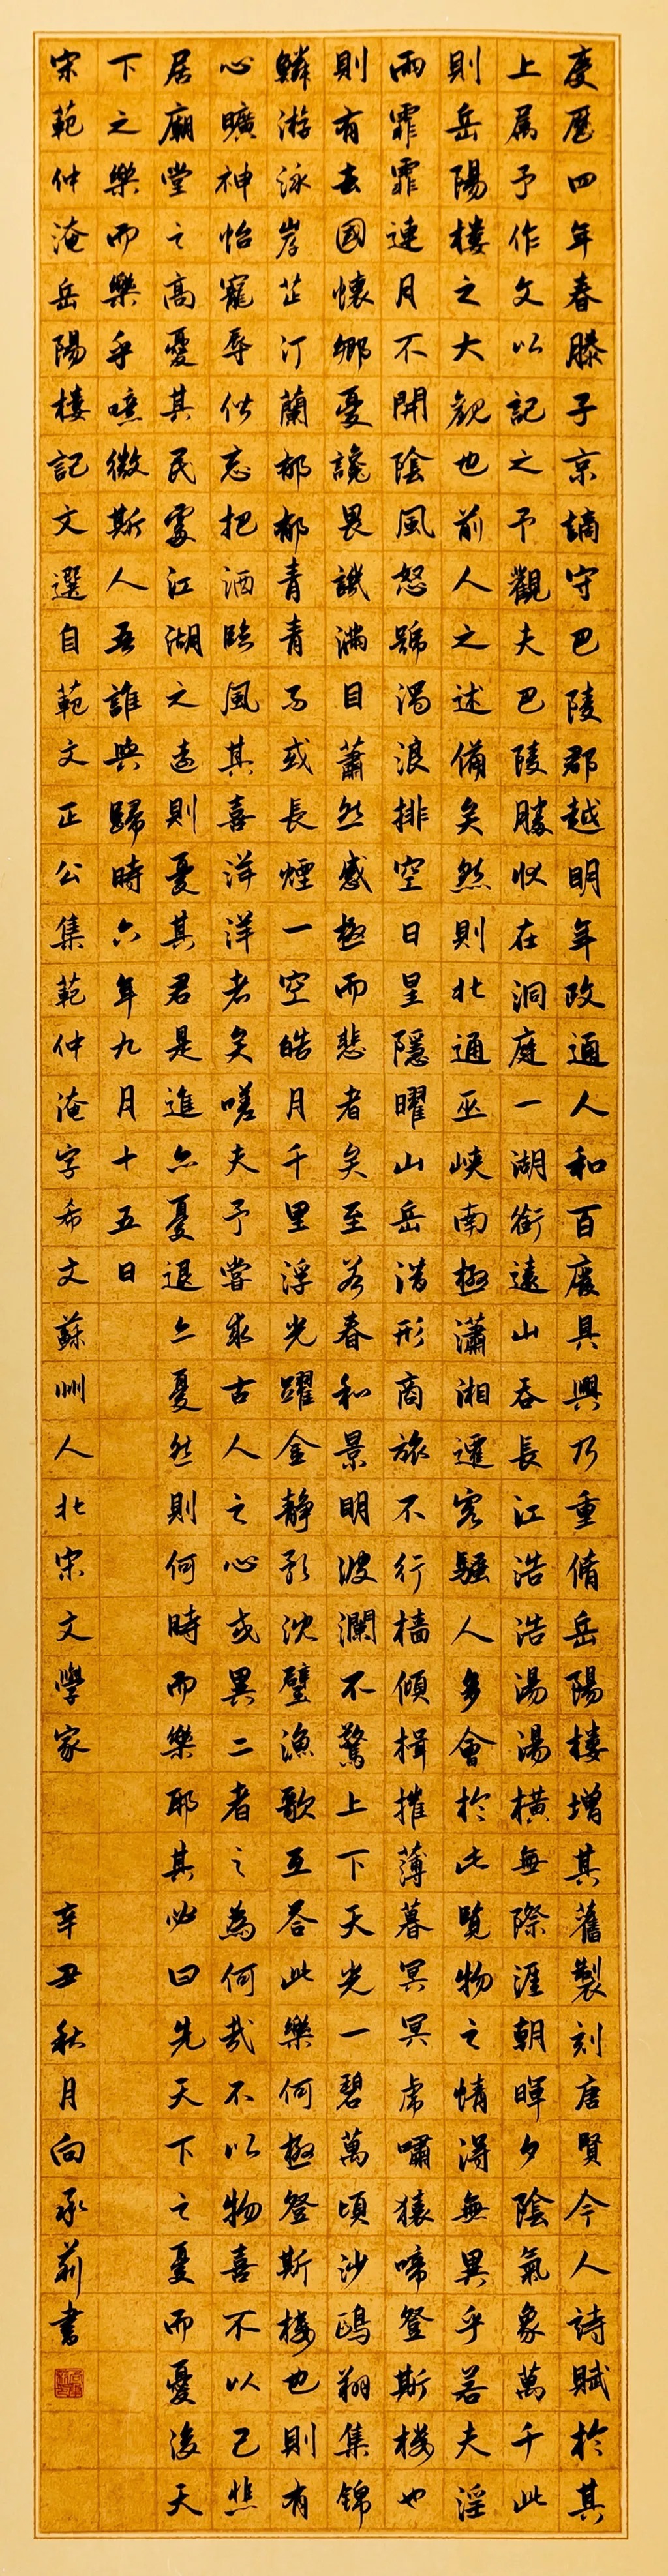 慶歷四年春滕子京謫守巴陵郡越明年政通人和百廢具興乃重脩岳陽樓增其舊製刻唐賢今人詩賦於其
上属予作文以記之予觀夫巴陵勝狀在洞庭一湖銜遠山吞長江浩浩湯湯橫無際涯朝暉夕陰氣象萬千此
則岳陽樓之大觀也前人之述備矣然則北通巫峽南極瀟湘遷客騷人多會於此覽物之情得無異乎若夫淫
雨霏霏連月不開陰風怒號濁浪排空日星隱曜山岳潛形商旅不行檣傾楫摧薄暮冥冥虎嘯猿啼登斯樓也
則有去國懷鄉憂讒畏譏滿目蕭然感極而悲者矣至若春和景明波瀾不驚上下天光一碧萬頃沙鷗翔集錦
鱗游泳岸芷汀蘭郁郁青青而或長煙一空皓月千里浮光躍金靜影沈璧漁歌互答此樂何極登斯樓也則有
心曠神怡寵辱偕忘把酒臨風其喜洋洋者矣嗟夫予嘗求古人之心或異二者之為何哉不以物喜不以己悲
居廟堂之高憂其民處江湖之遠則憂其君是進亦憂退亦憂然則何時而樂耶其必曰先天下之憂而憂後天
下之樂而樂乎噫微斯人吾誰與歸時六年九月十五日
宋範仲淹岳陽樓記文選自範文正公集範仲淹字希文蘇州人北宋文學家 辛丑秋月向承莉書